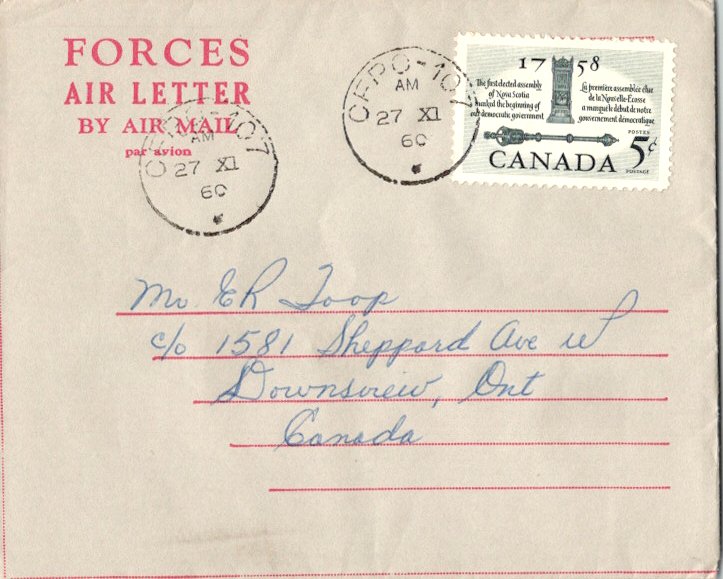 FORCES
AIR LETTER
BY AIR MAIL
par avion
CFPO-107
AM
27 XI
60
CFPO-107
AM
27 XI
60
1758
The first elected assembly
of Nova Scotia
marked the beginning of
our democratic government
La première assemblée élue
de la Nouvelle-Écosse
a marqué le début de notre
gouvernement démocratique
POSTES
5¢
POSTAGE
CANADA
Mr. ER Toop
c/o 1581 Sheppard Ave W
Downsview, Ont
Canada